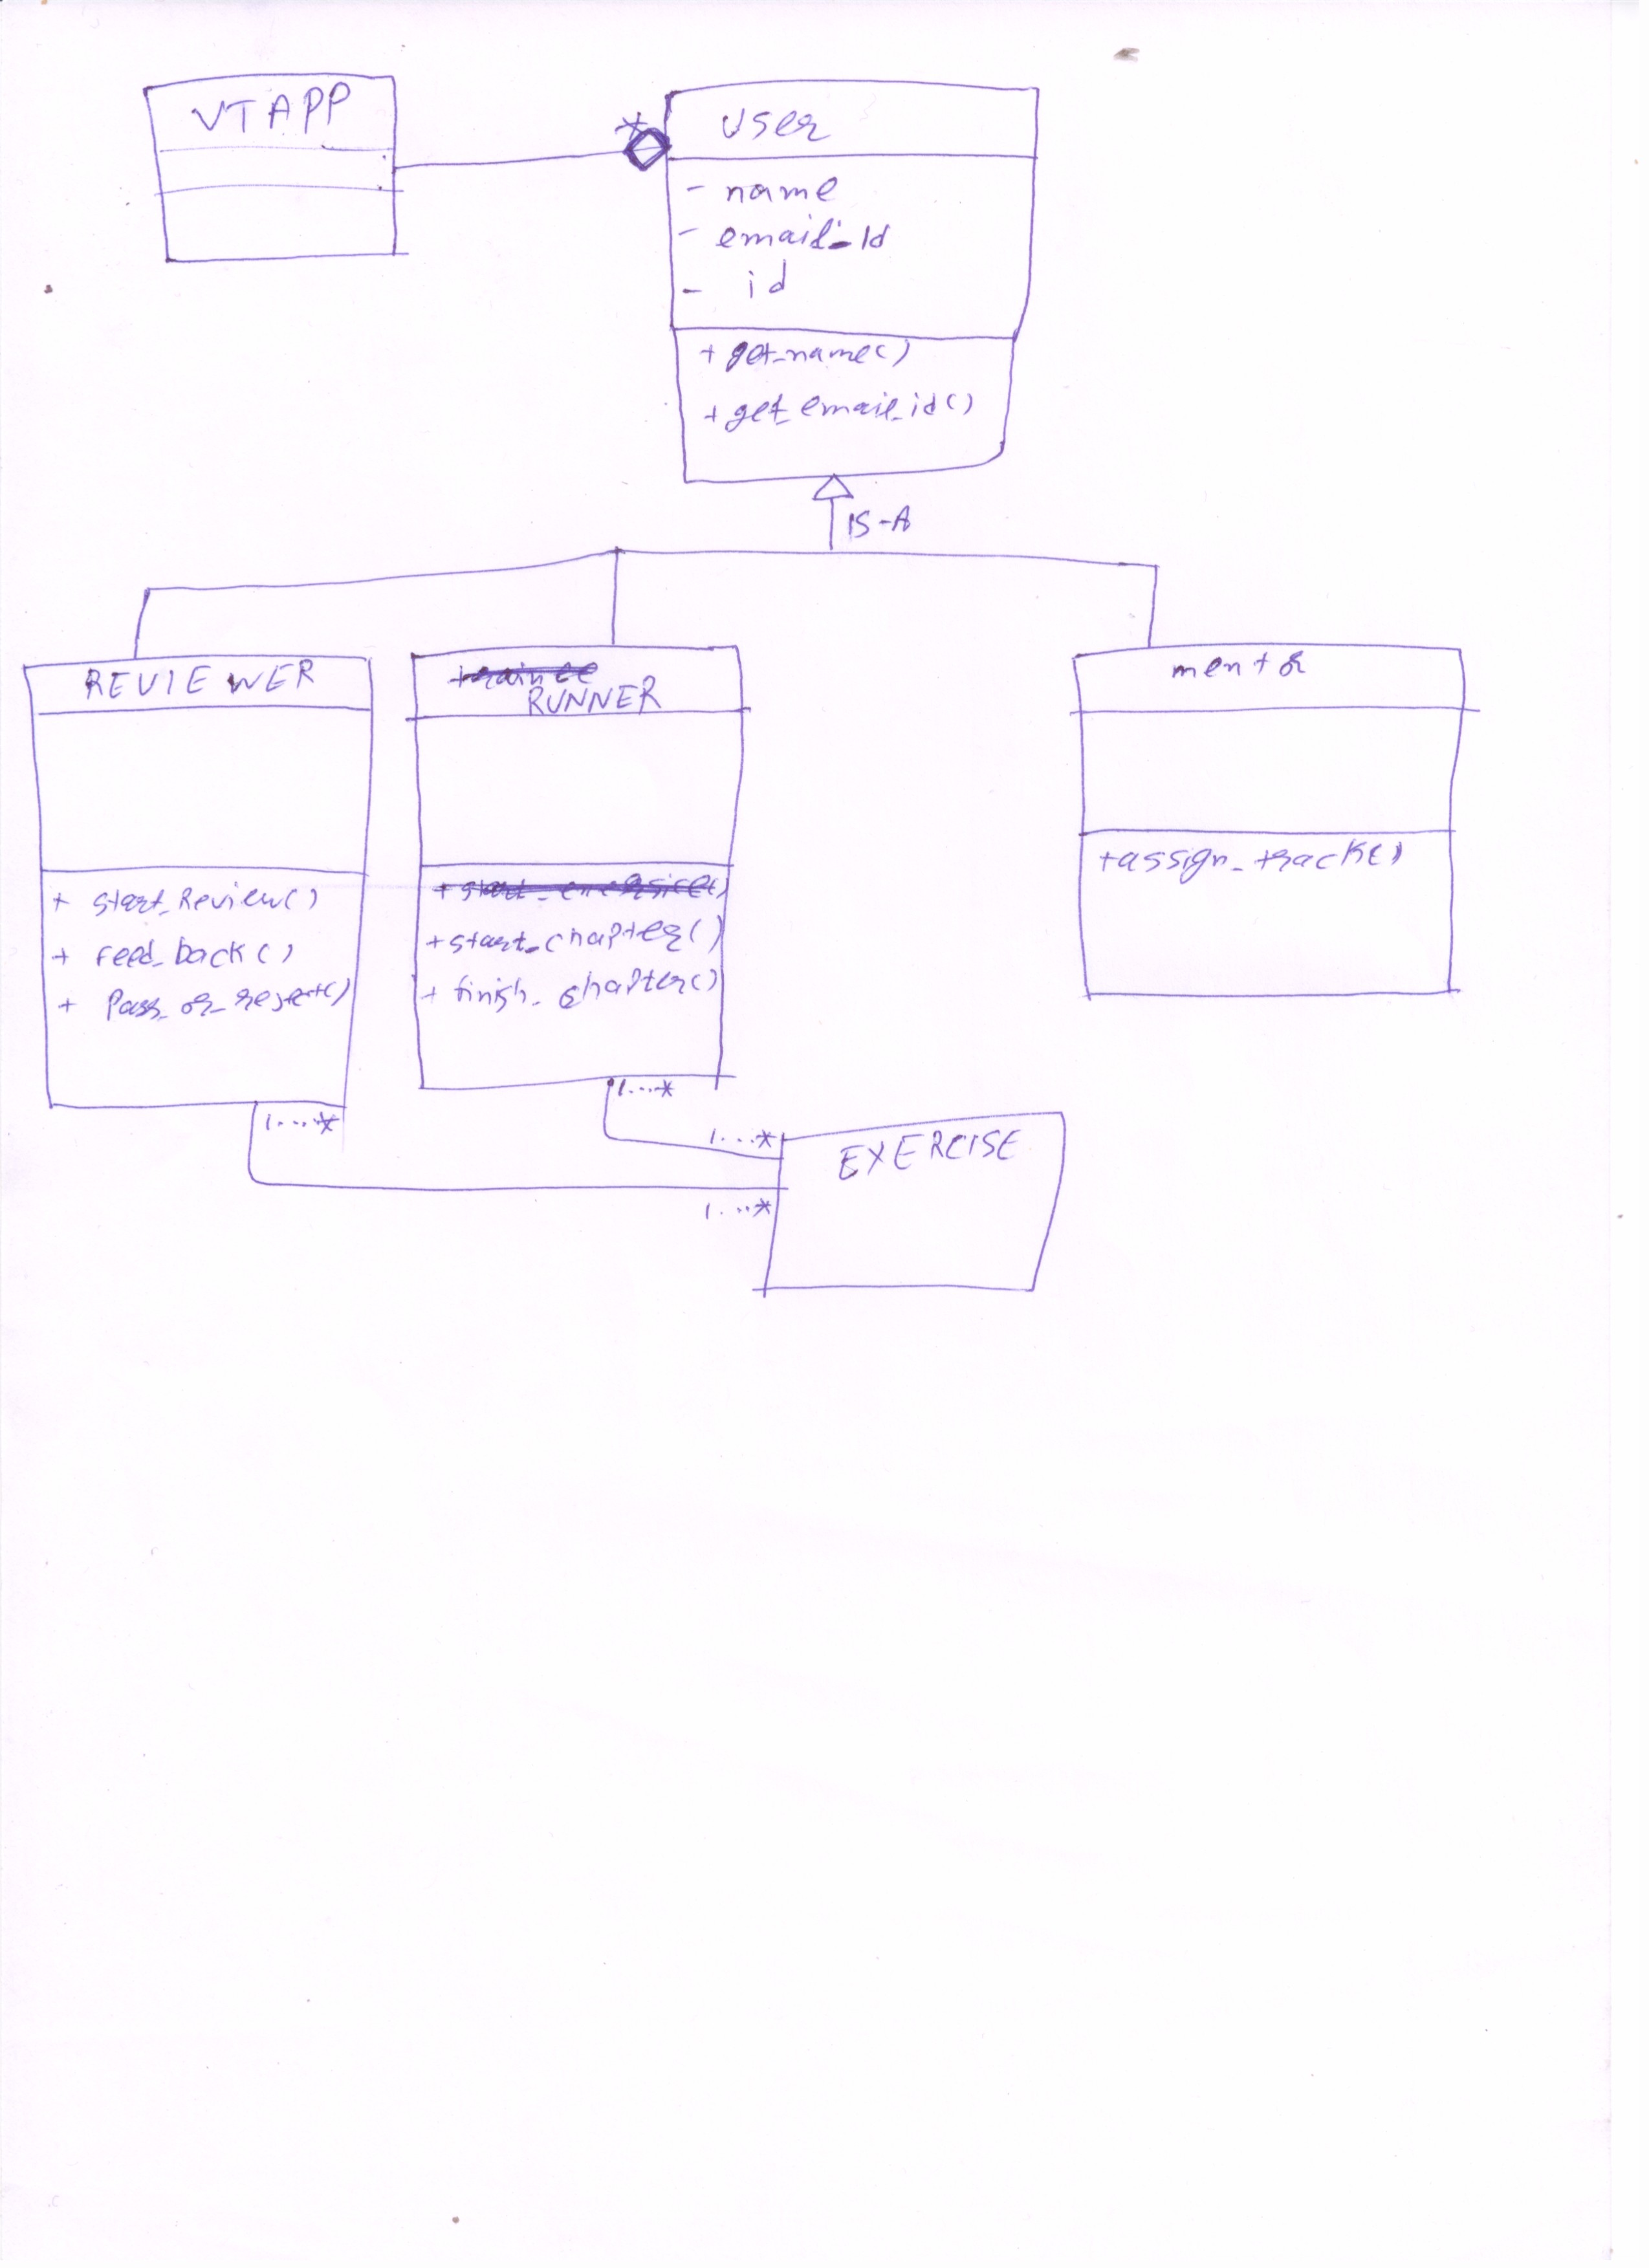 VTAPP
*
user
- name
- email_Id
- id
+ get_name()
+ get_email_id()
IS-A
REVIEWER
+ start_Review()
+ feed_back()
+ Pass_or_reject()
trainee
RUNNER
+ start_exersice()
+ start_chapter()
+ finish_chapter()
mentor
+assign_track()
1...*
1...*
1...*
1...*
EXERCISE